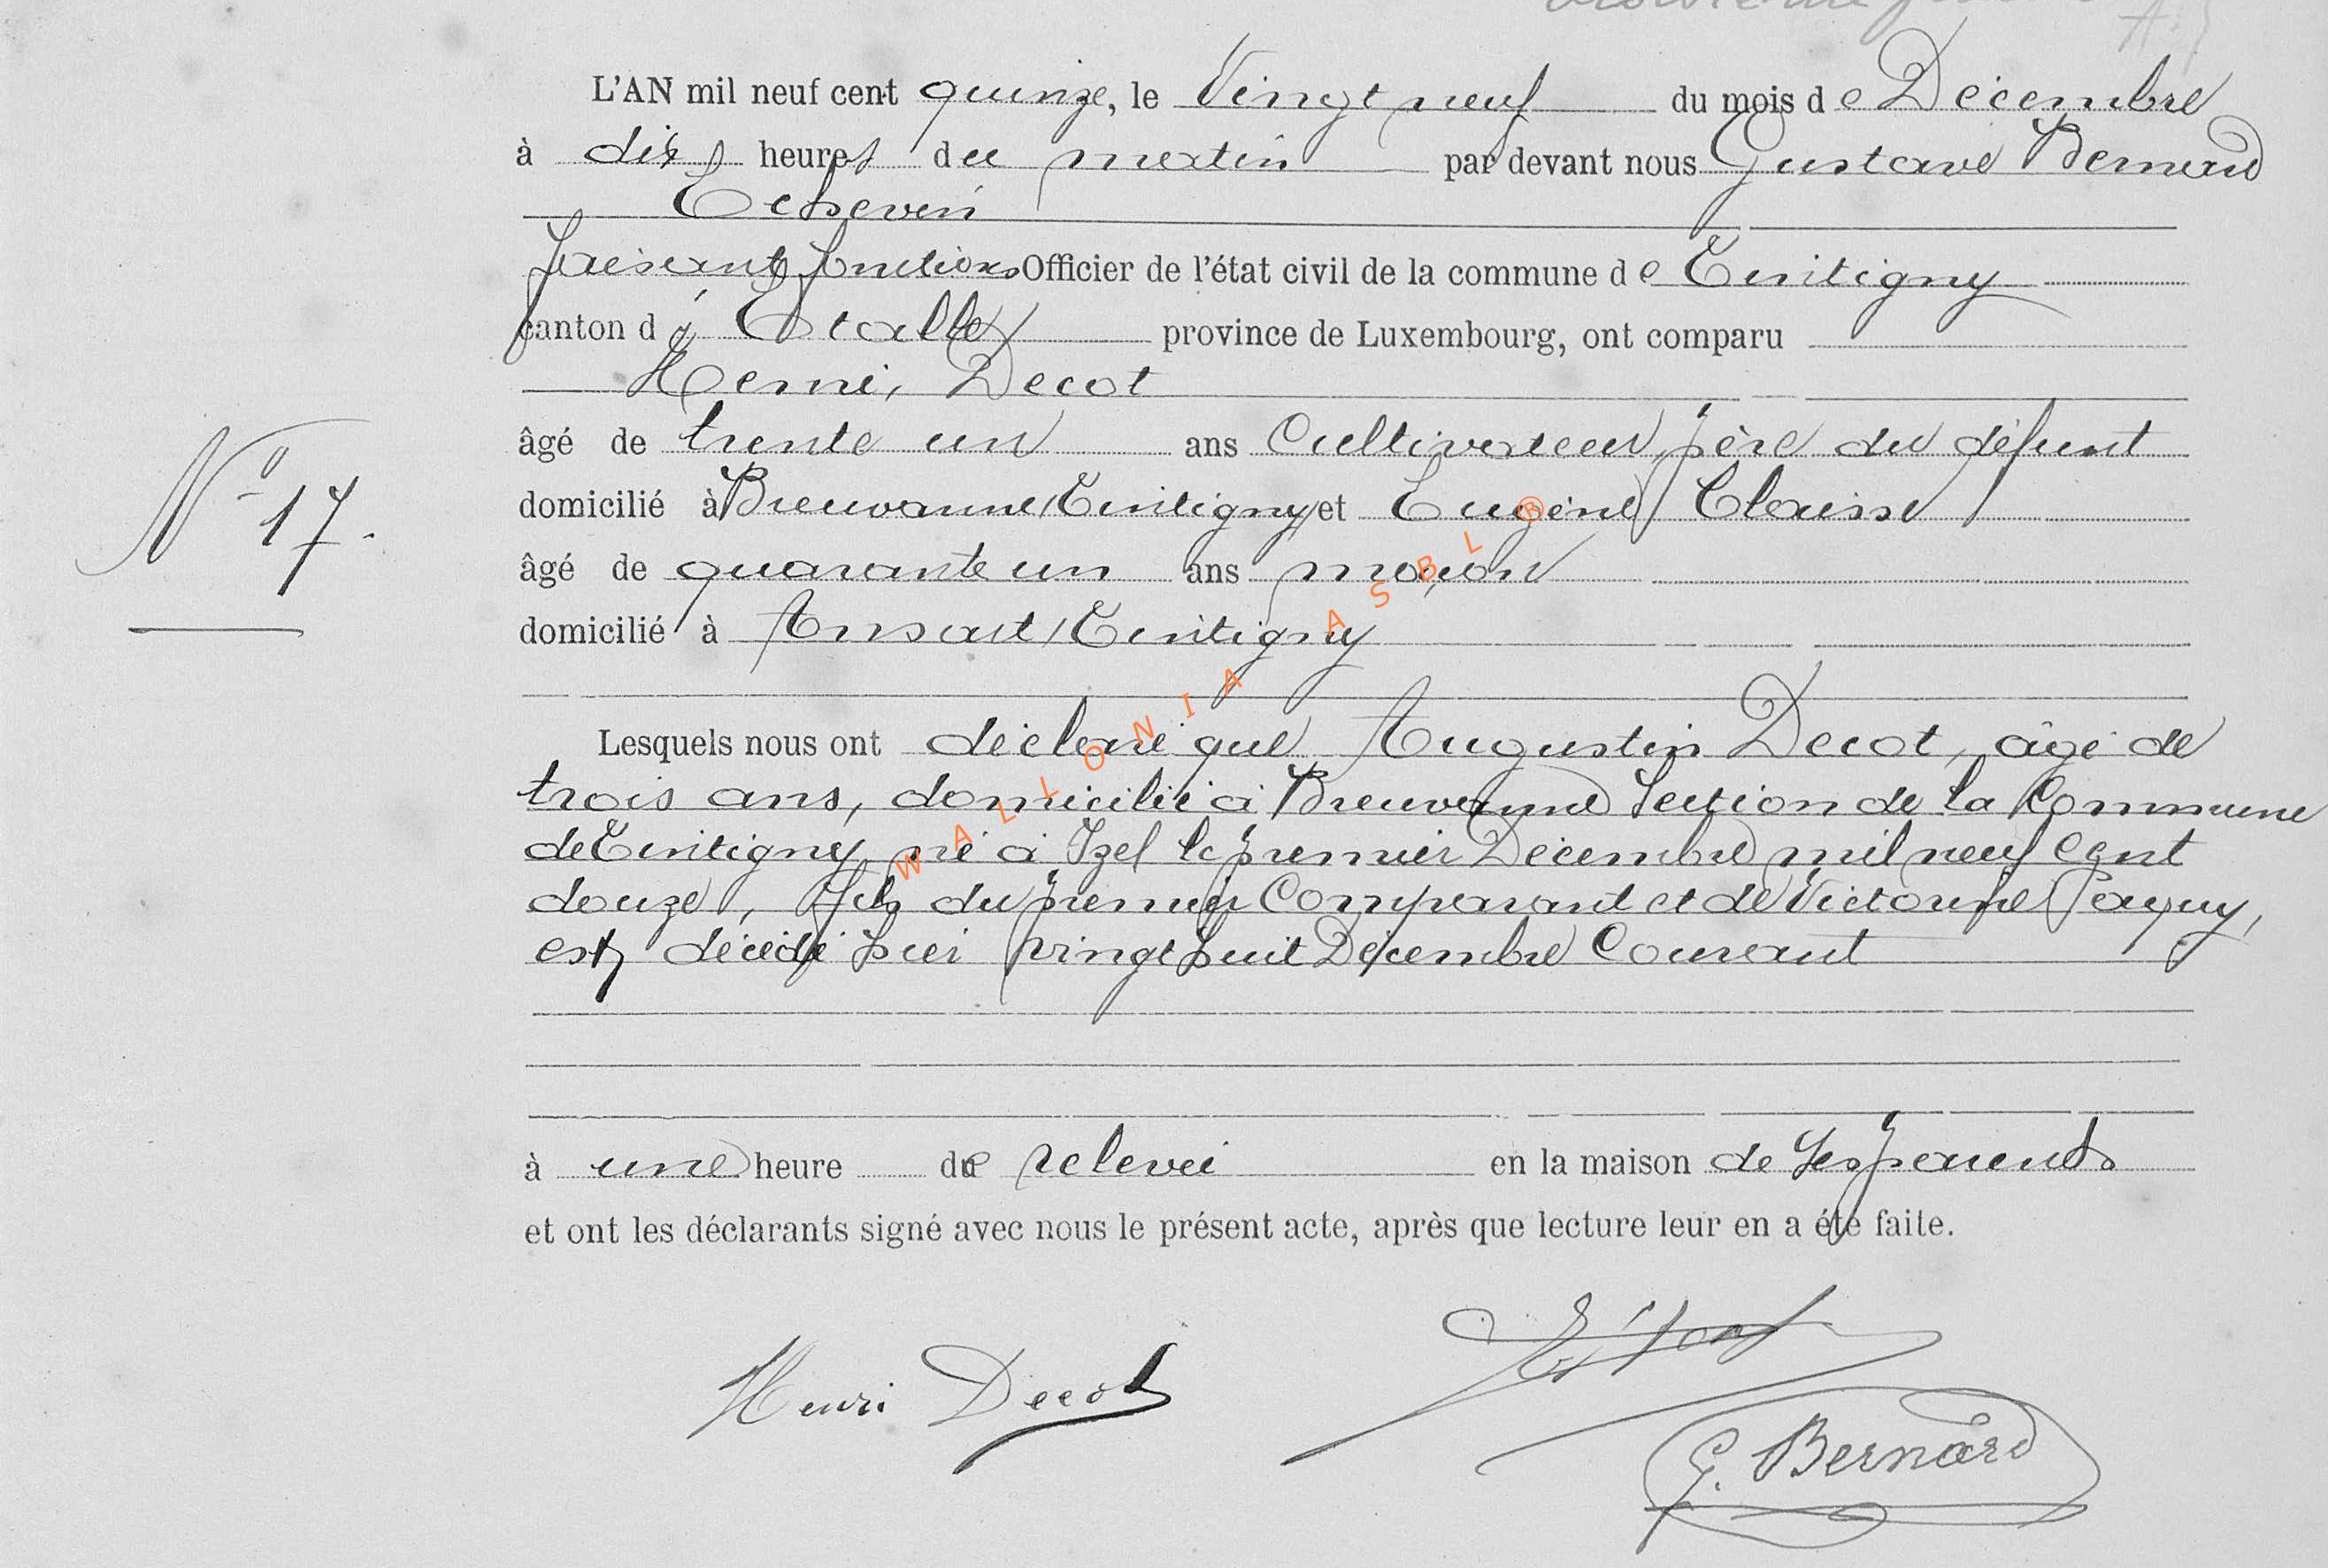 L'AN mil neuf cent quinze, le Vingt neuf du mois de Décembre
à dix heures du matin par devant nous Gustave Bernard
Echevin
faisant fonctions Officier de l'état civil de la commune de Tintigny
canton d'Etalle province de Luxembourg, ont comparu
Henri, Decot
âgé de trente un ans Cultivateur, père du défunt
domicilié à Breuvanne/Tintigny et Eugène Clausse
N° 17.
âgé de quarante un ans maçon
domicilié à Ansart/Tintigny
Lesquels nous ont déclaré que Augustin Decot, âgé de
trois ans, domicilié à Breuvanne Section de la Commune
de Tintigny né à Izel le premier Décembre mil neuf cent
douze, fils du premier Comparant et de Victorine Paquy,
est décédé hier vingt huit Décembre Courant
à une heure de relevée en la maison de Ses parents
et ont les déclarants signé avec nous le présent acte, après que lecture leur en a été faite.
Henri Decot
G. Bernard
WALLONIA ASBL ®